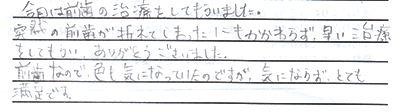 今回は前歯の治療をしてもらいました。
突然の前歯が折れてしまったにもかかわらず、早い治療
をしてもらい、ありがとうございました。
前歯なので、色も気になっていたのですが、気にならず、とても
満足です。